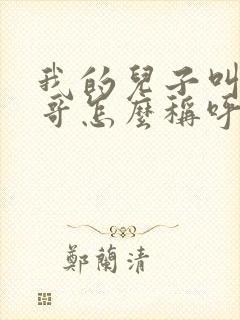 我的兒子叫
哥怎麼稱呼
鄭蘭清